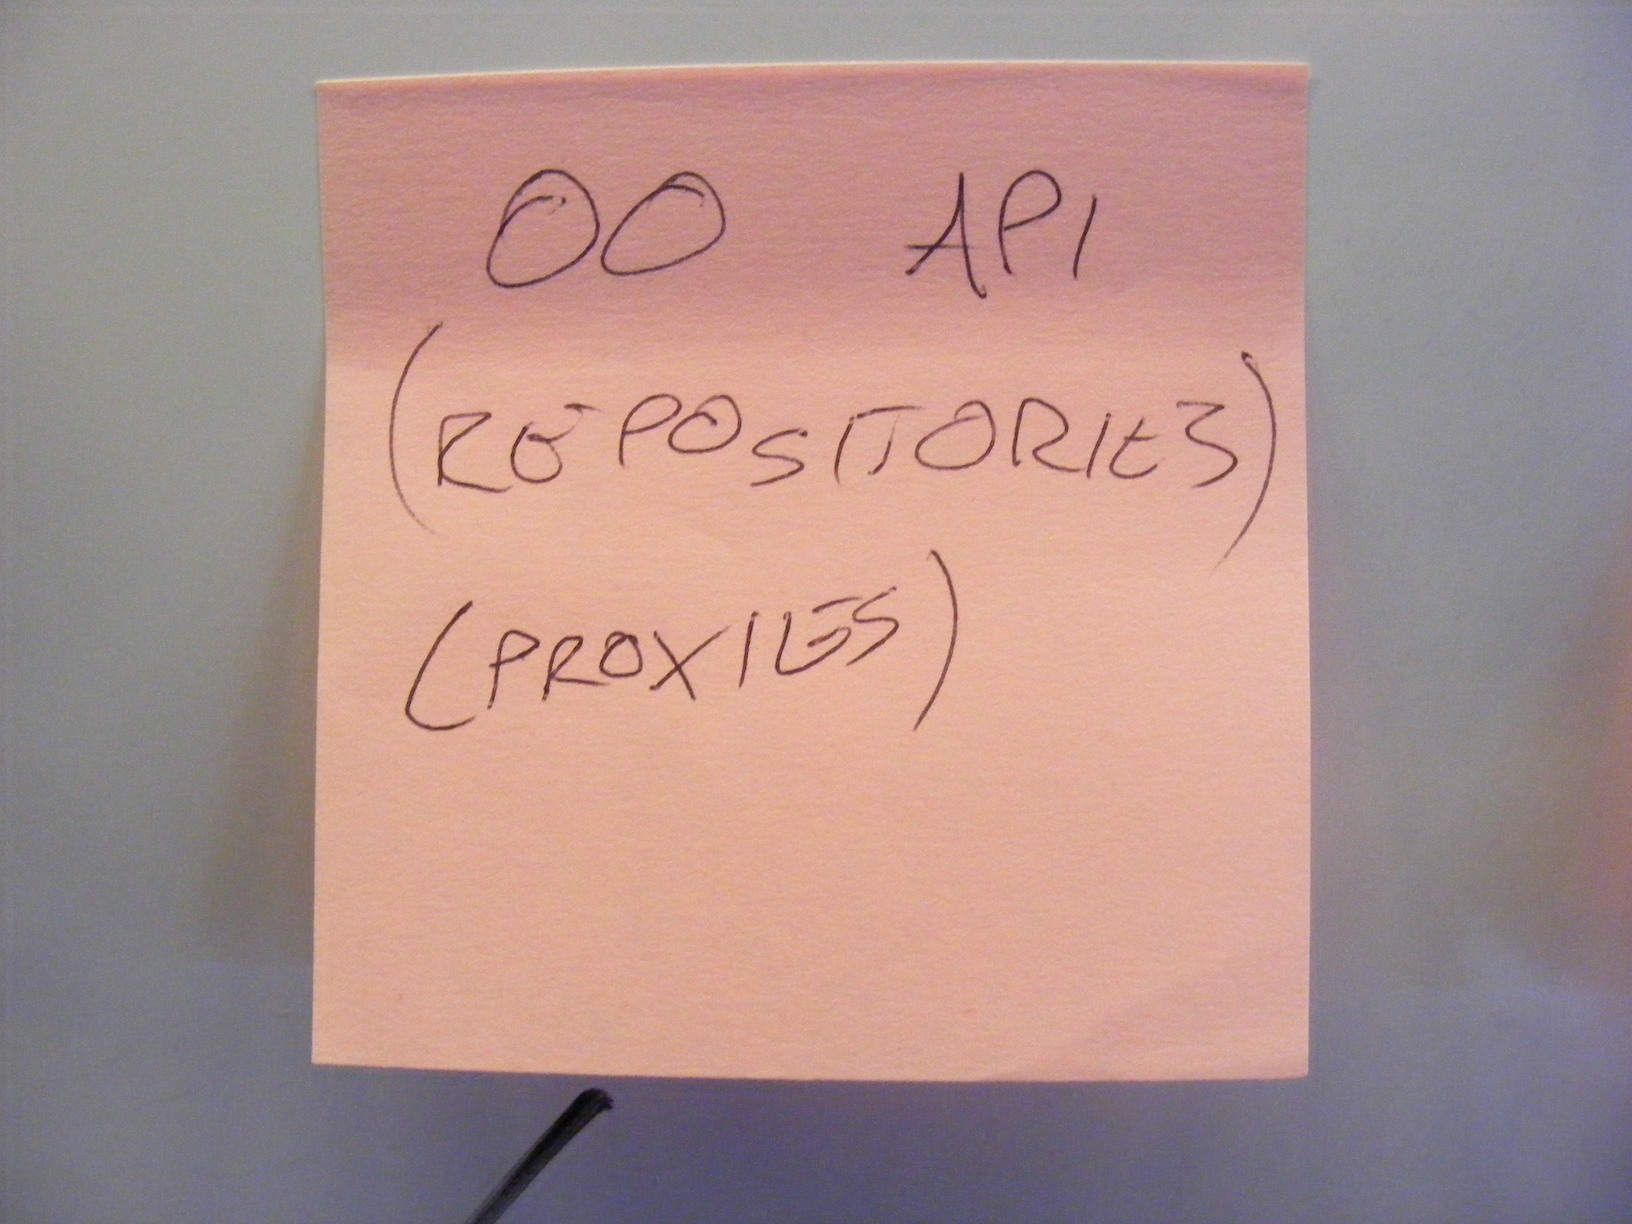 OO API
(REPOSITORIES)
(PROXIES)